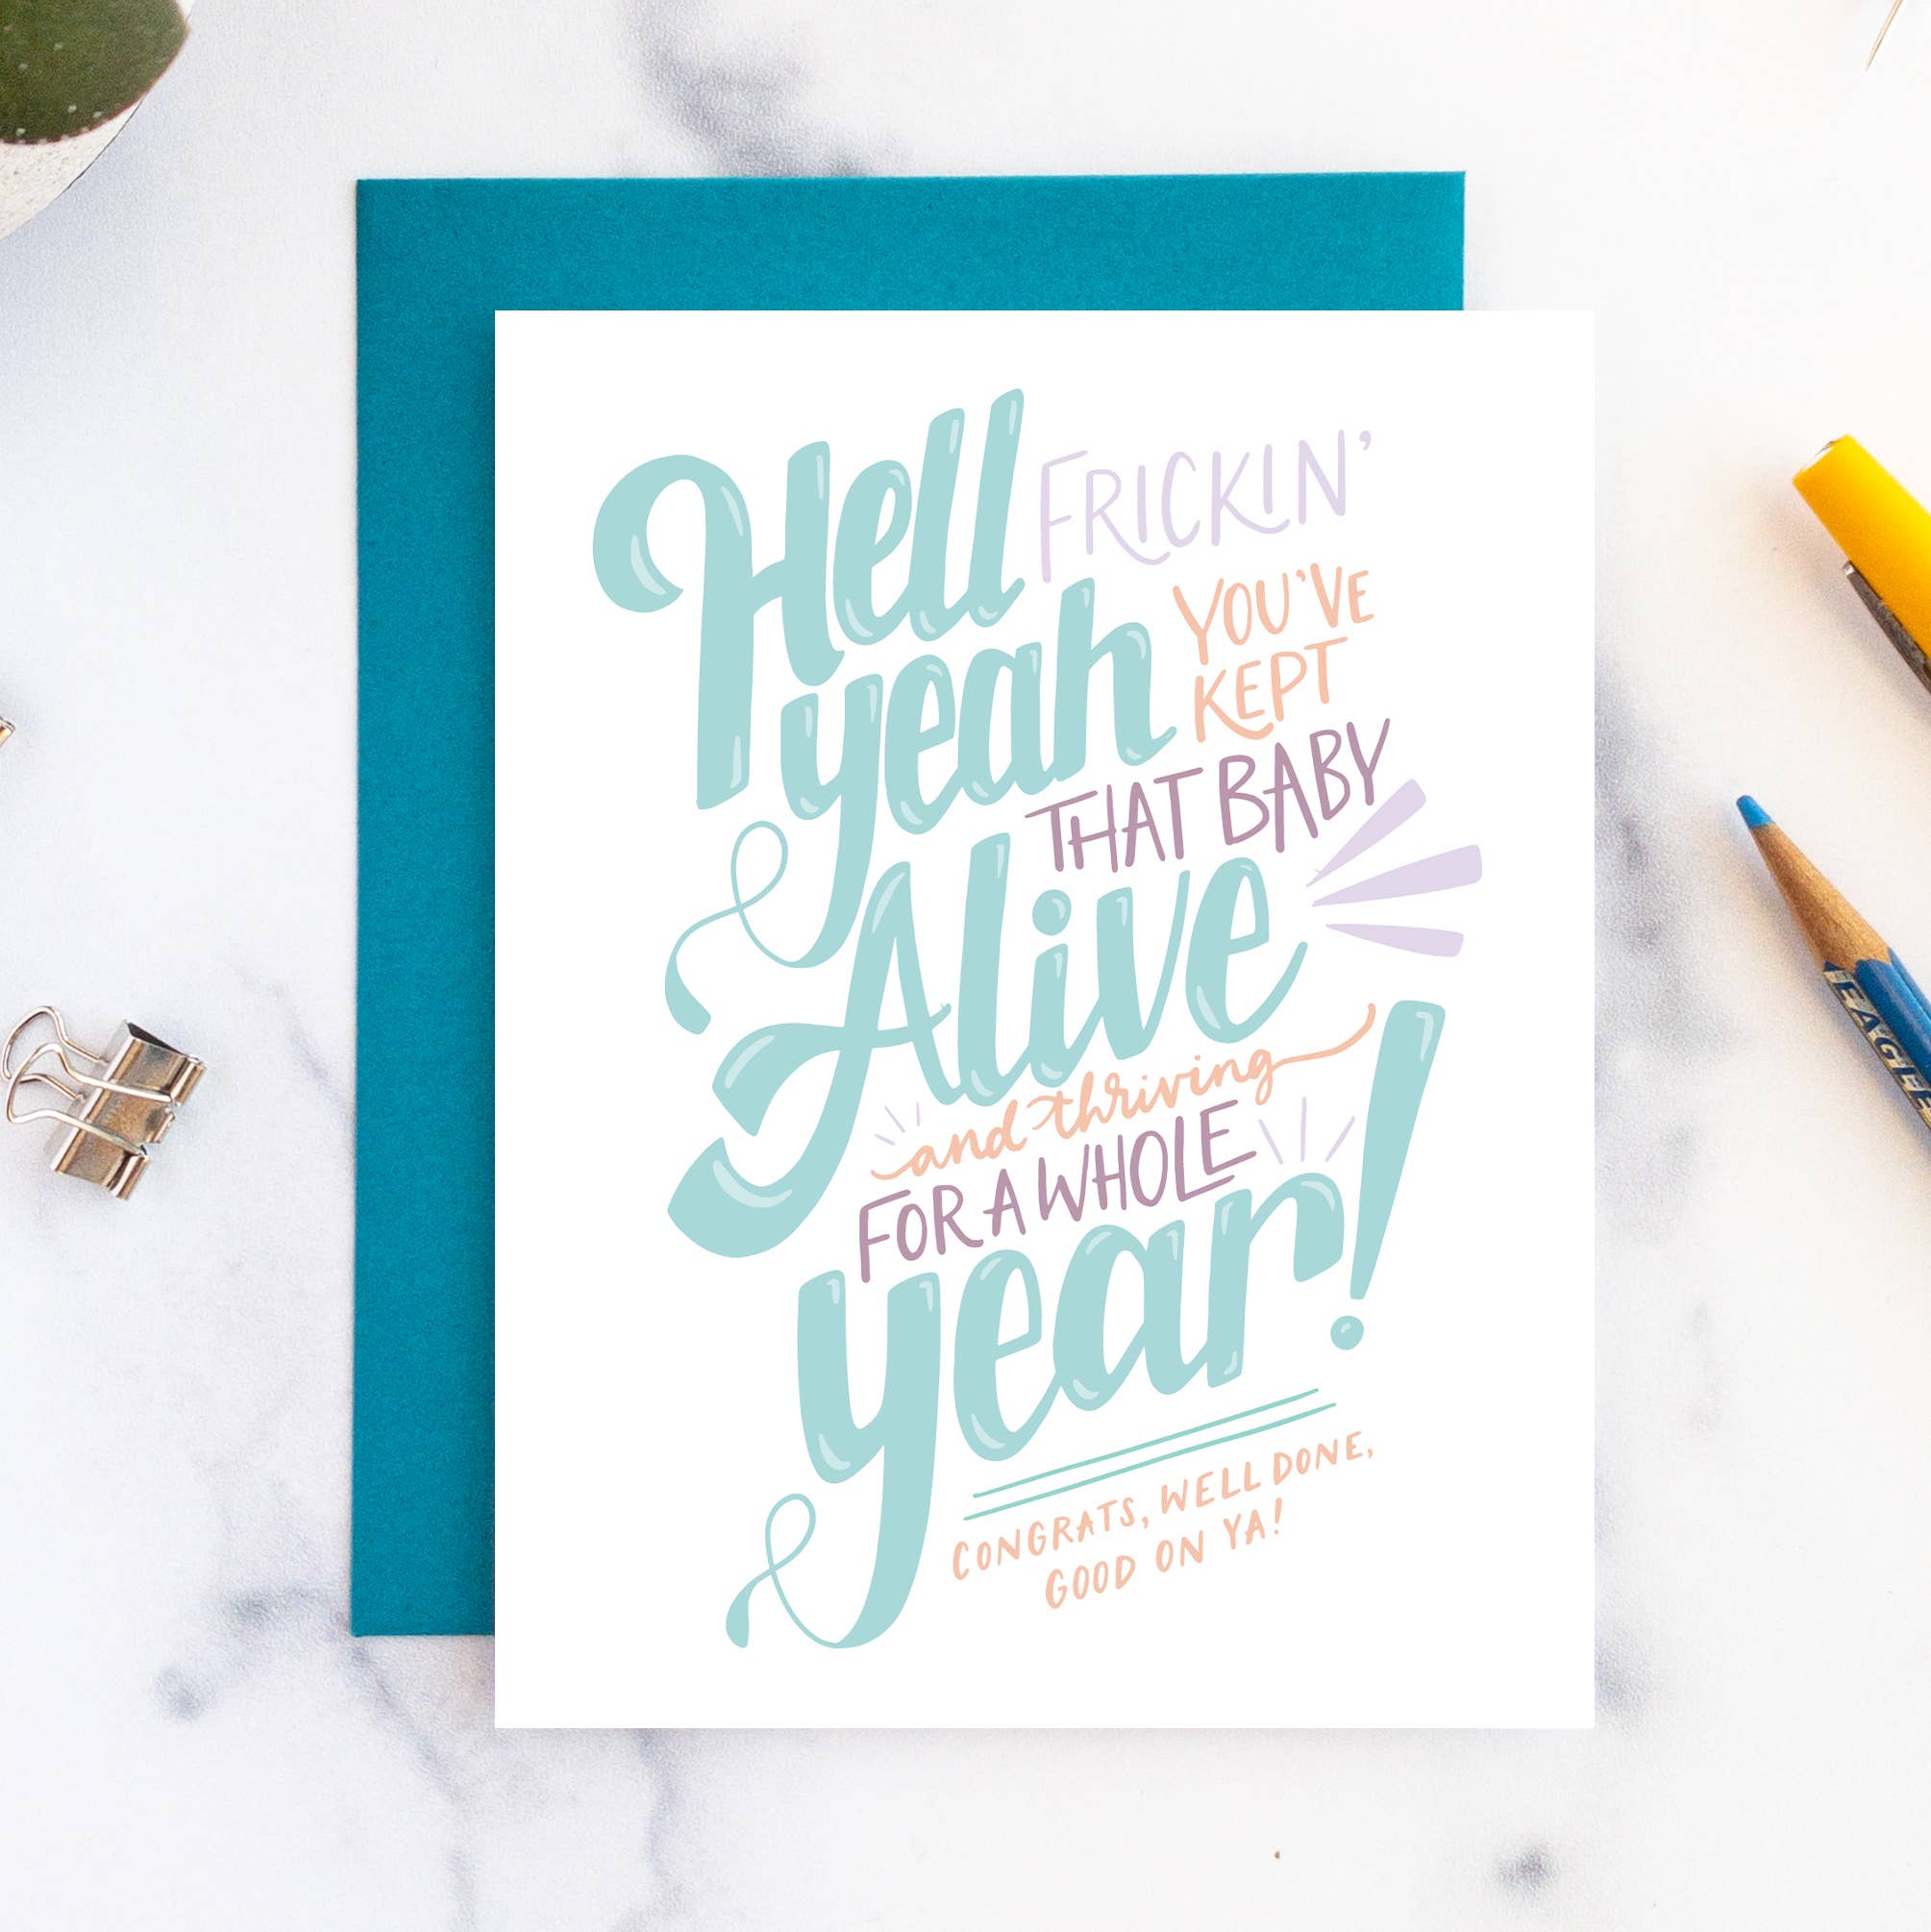 Hell FRICKIN'
yeah YOU'VE
KEPT
THAT BABY
Alive
and thriving
FOR A WHOLE
year!
CONGRATS, WELL DONE,
GOOD ON YA!
EAGLE